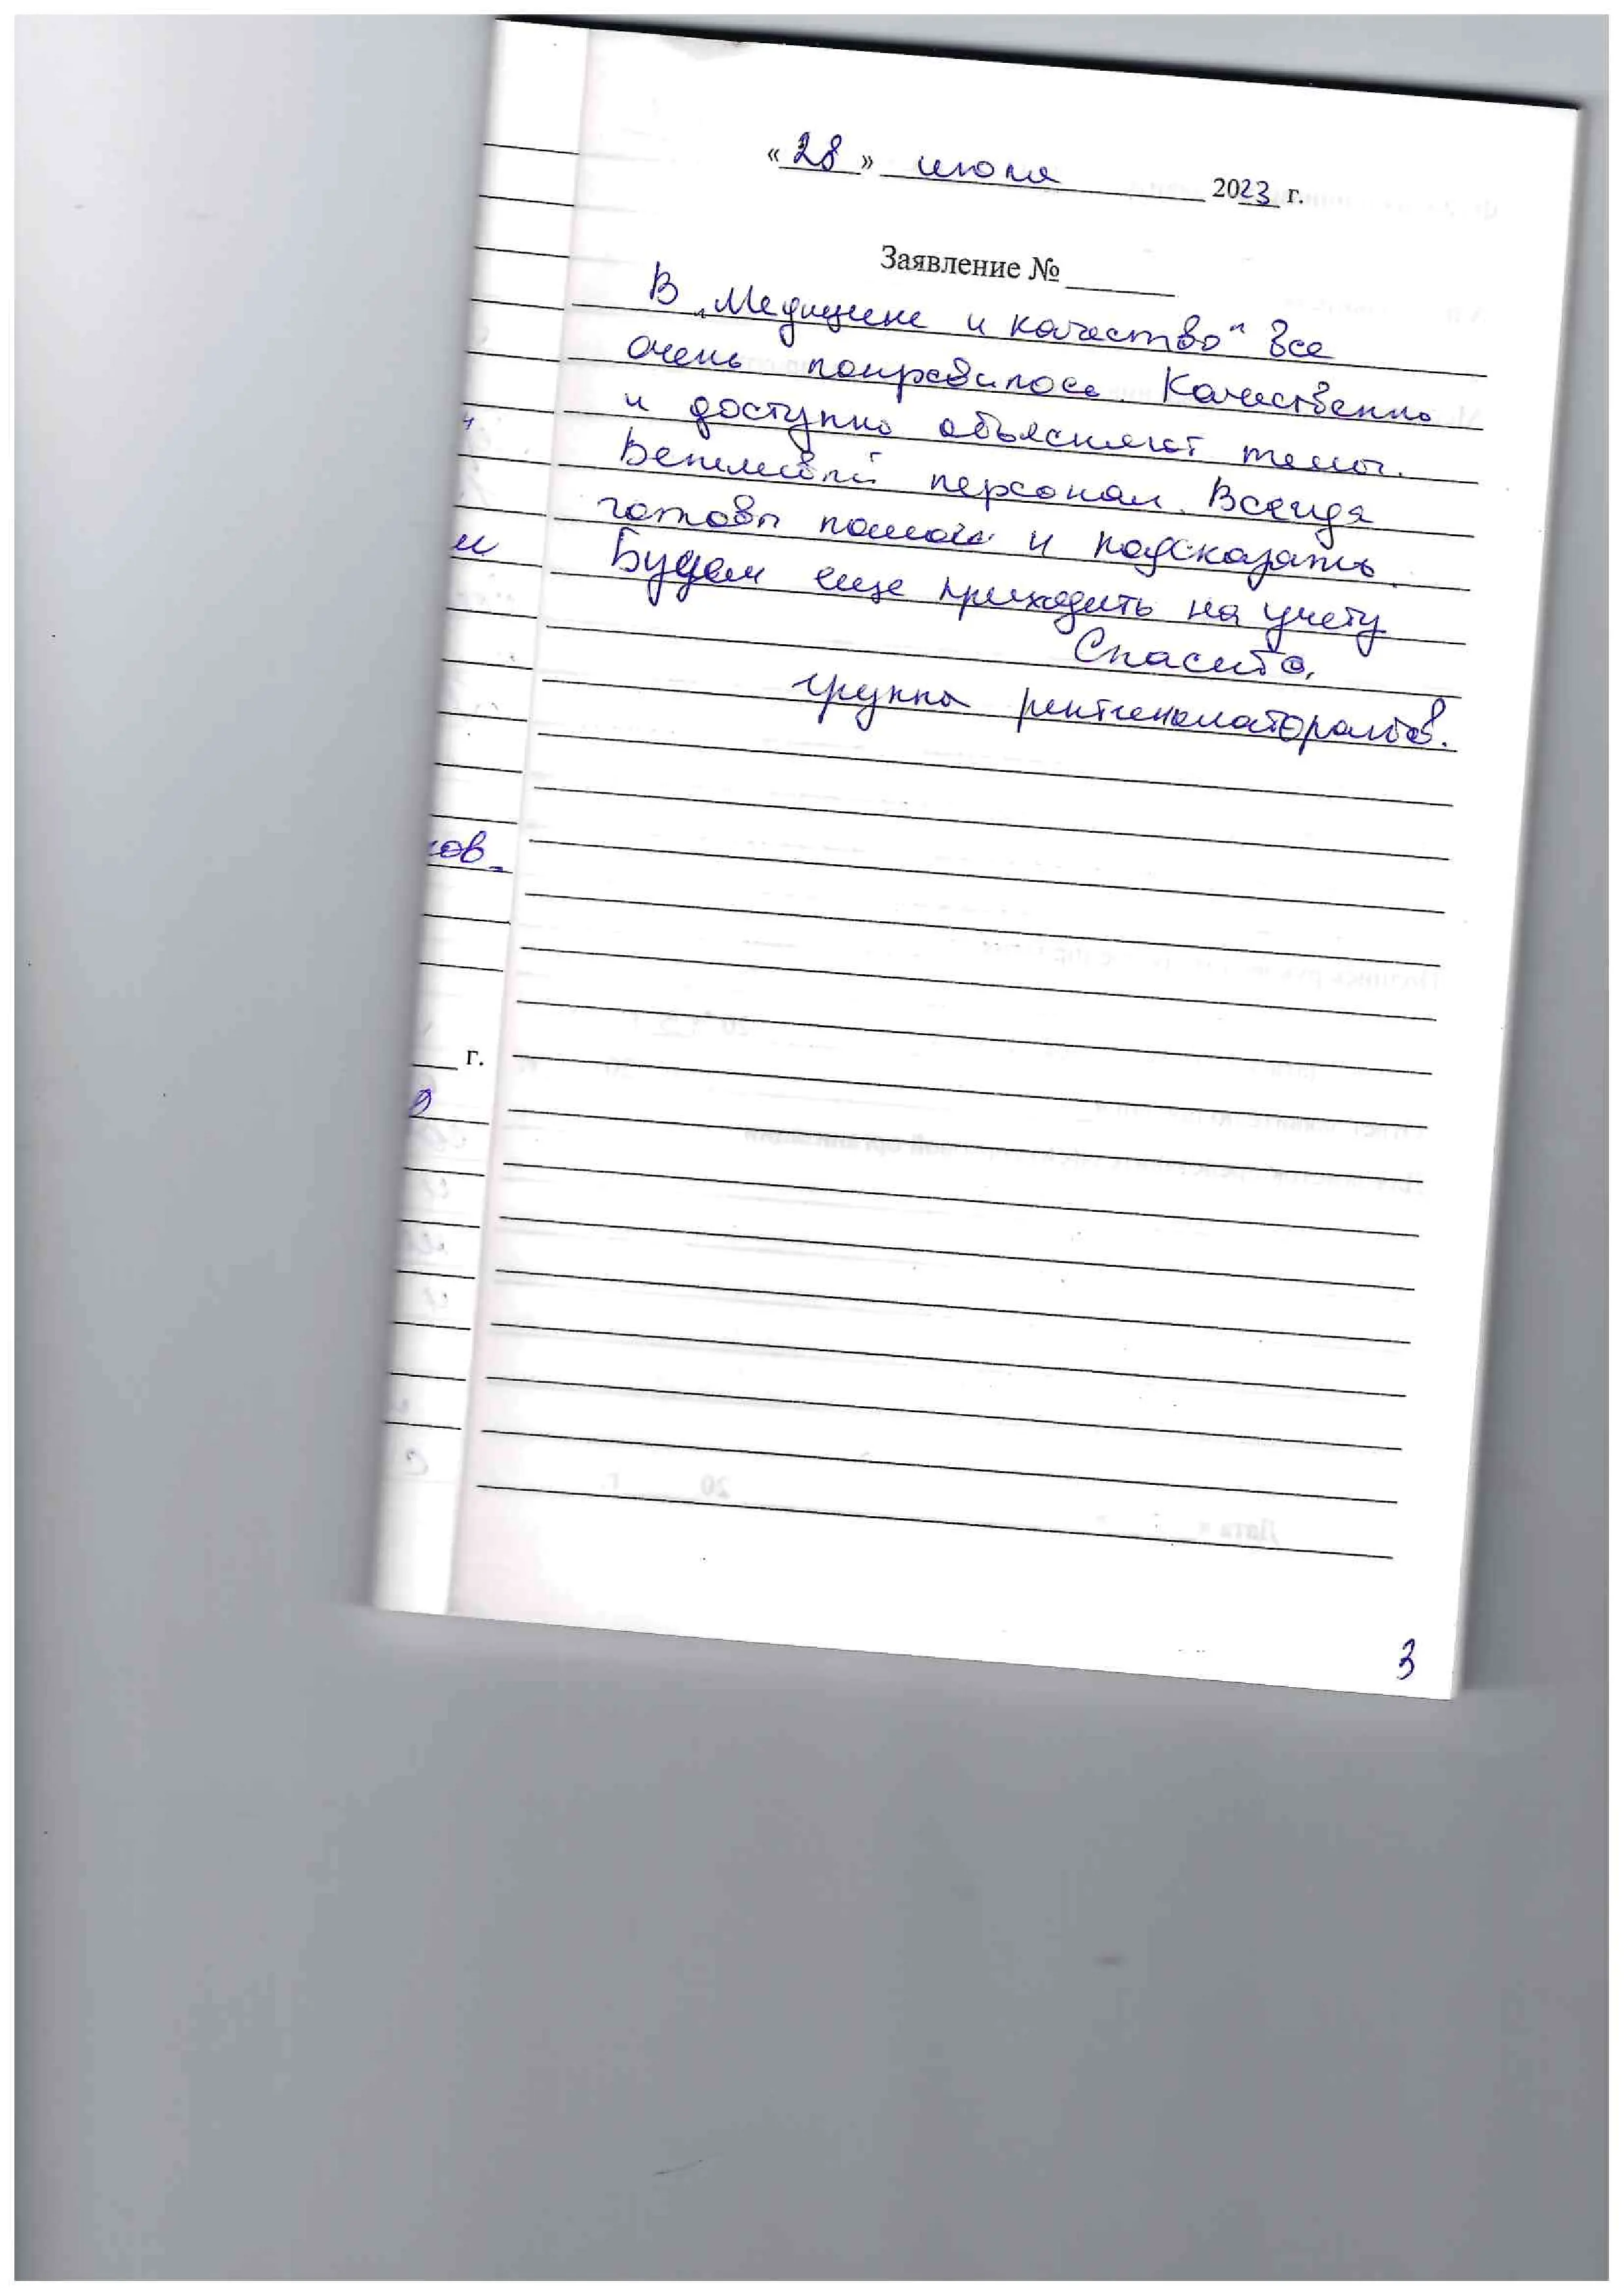 «28» июля 2023 г.
Заявление №
В „Медицине и качество“ все
очень понравилось. Качественно
и доступно объясняют темы.
Вежливый персонал. Всегда
готовы помочь и подсказать.
Будем еще приходить на учебу
Спасибо,
группа рентгенолаборантов.
ков.
г.
3